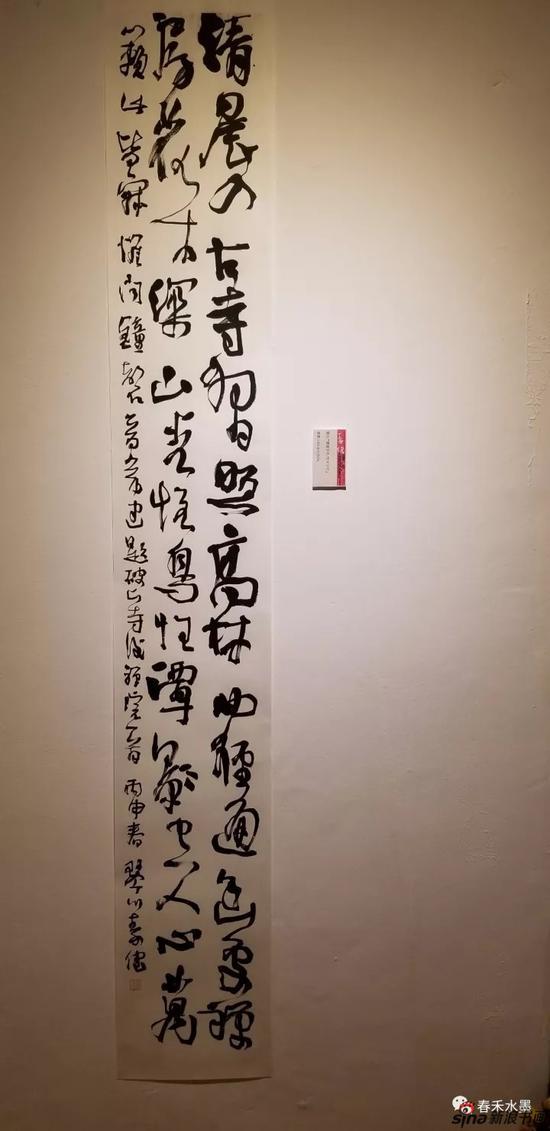 清晨入古寺初日照高林曲徑通幽處禪
房花木深山光悅鳥性潭影空人心萬
籟此皆寂惟闻鐘磬音常建題破山寺後禪院一首 丙申春 琴川
春禾水墨
sina新浪书画